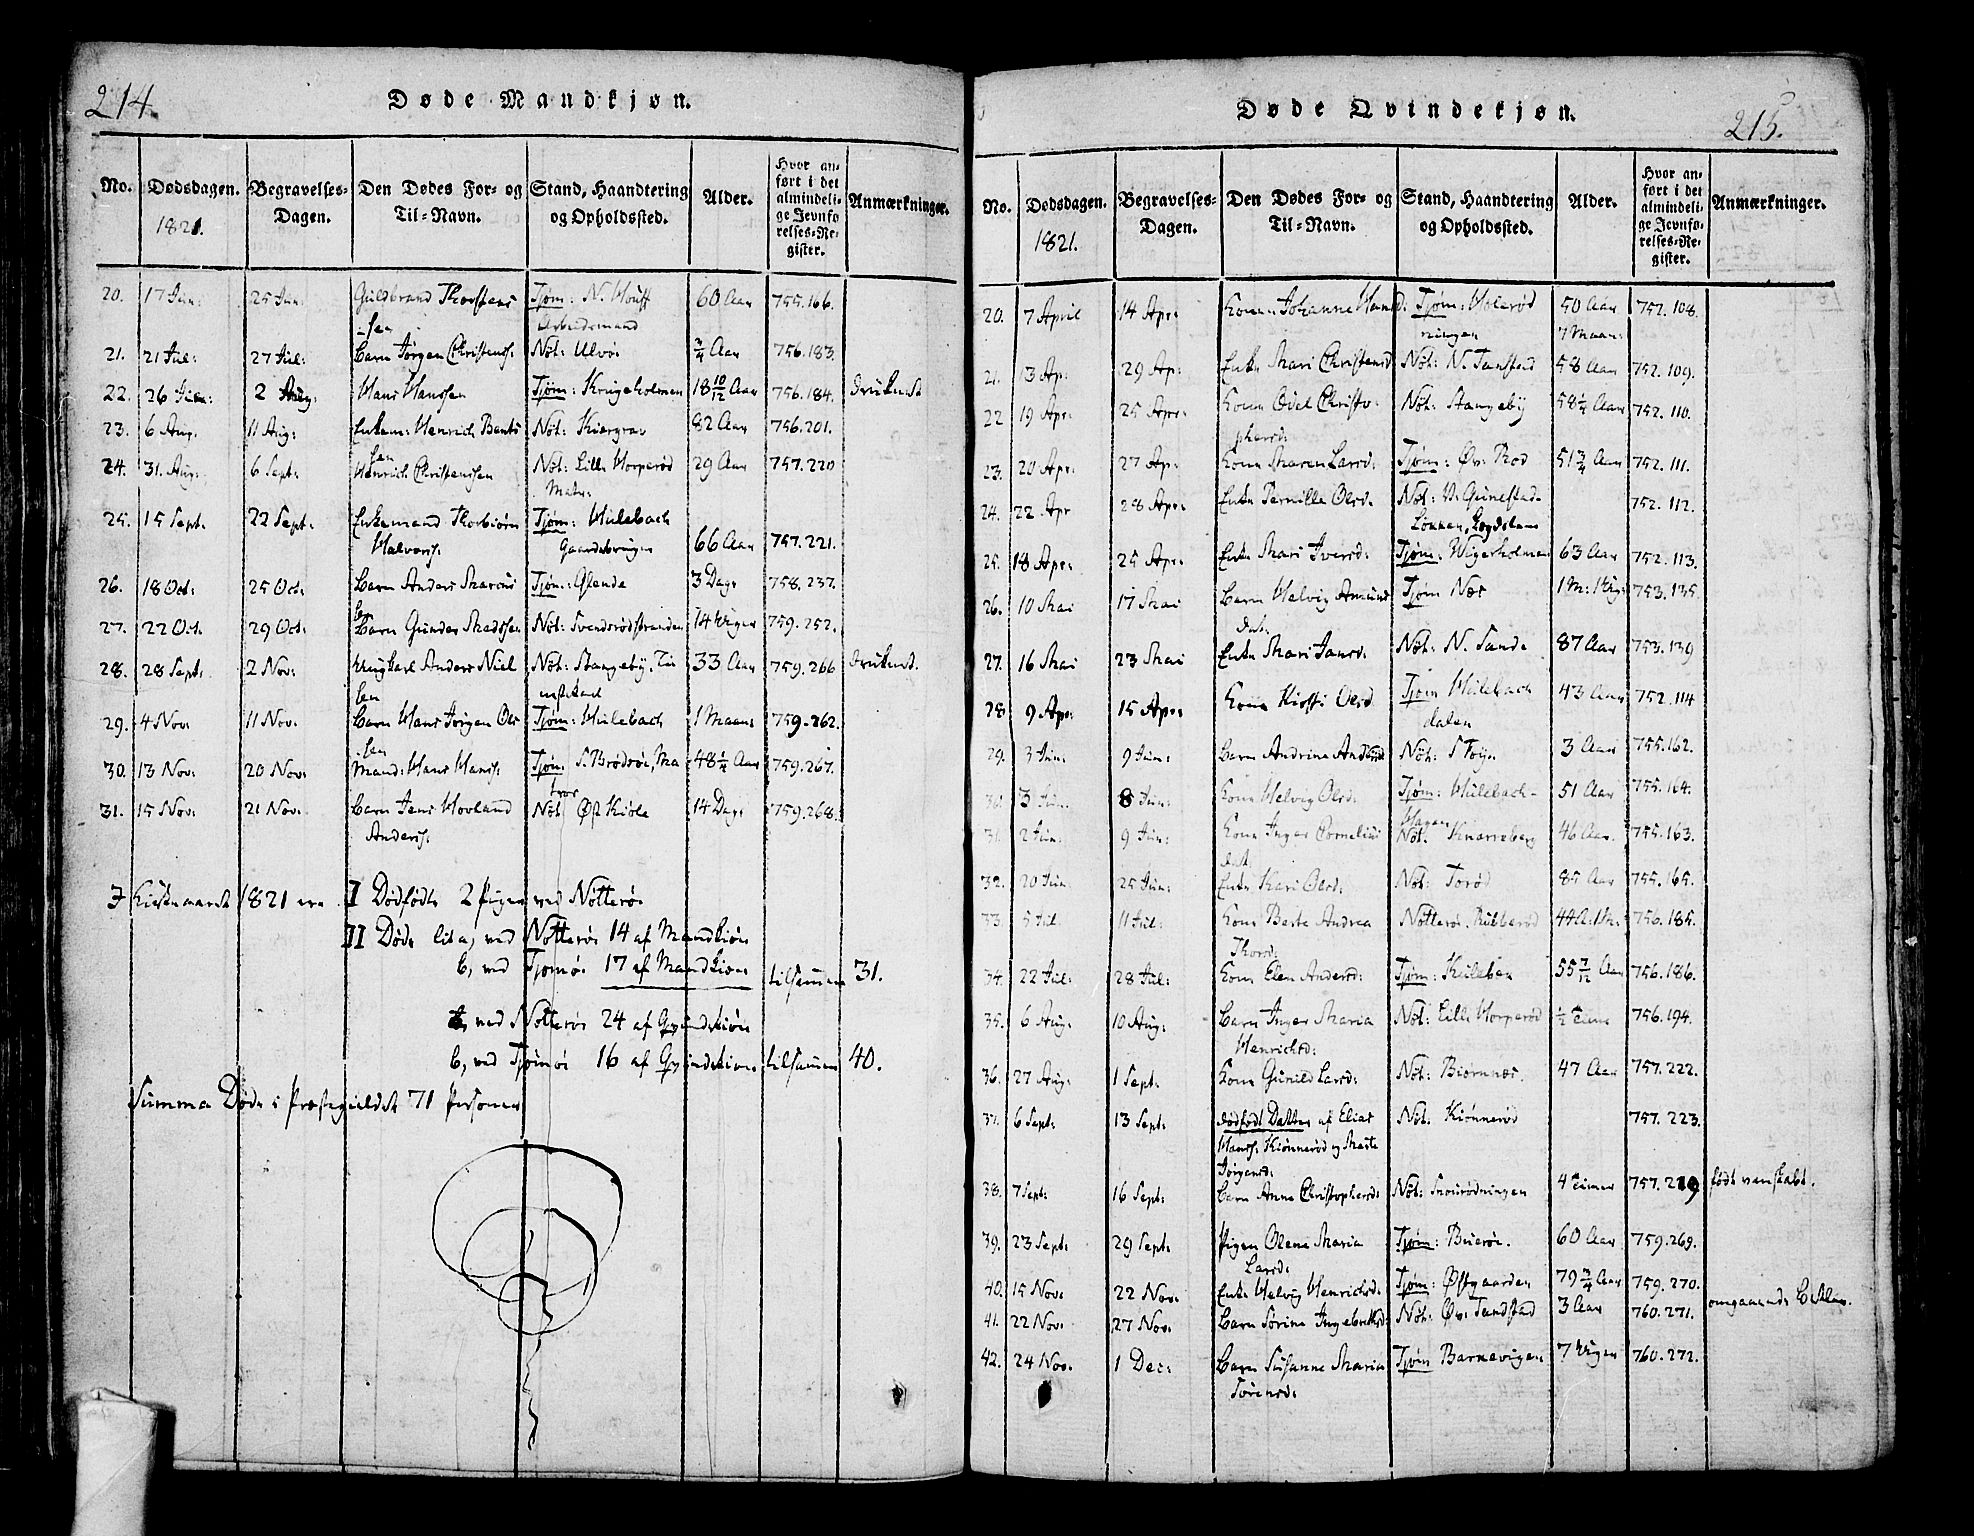 214.
Døde Mandkjøn.
No. Dødsdagen. 1821. Begravelses-Dagen. Den Dødes For- og Til-Navn. Stand, Haandtering og Opholdssted. Alder. Hvor anført i det almindelige Jevnførelses-Register. Anmærkninger.
20. 17 Jun: 25 Jun: Guldbrand Thorstens Tjøm: N. 60 Aar 755.166.
-sen Arbeidsmand
21. 21 Jul: 27 Jul: Barn Jørgen Christenss. Nöt: Ulvø. ¾ Aar 756.183.
22. 26 2 Aug: Hans Hanssen Tjøm: Krugeholmen 18 10/12 Aar 756.184. druknet
23. 6 Aug. 11 Aug: Enkem: Henrich Bents Nöt: 82 Aar 756.201.
sen
24. 31. Aug: 6 Sept: Henrich Christenssen Nöt: Lille Horperød 29 Aar 757.220
Matr:
25. 15 Sept. 22 Sept: Enkemand Thorbiørn Tjøm: Hulebach
Halvorss. Gaardebruger 66 Aar 757.221.
26. 18 Oct: 25 Oct: Barn Anders Marcus Tjøm: Glende 3 Dage 758.237.
sen
27. 22 Oct. 29 Oct: Barn Gunder Madssen Nöt: Svendsrødstranden 14 Uger 759.252.
28. 28 Sept. 2 Nov: Ungkarl Anders Niel Nöt: Stangeby, 33 Aar 759.266 druknet.
sen
29. 4 Nov. 11 Nov. Barn Hans Jørgen Ols Tjøm: Hulebach 1 Maan: 759.262.
sen
30. 13 Nov: 20 Nov: Mand: Hans Hanss. Tjøm: S. Brødrøe, Ma 48½ Aar 759.267.
tros
31. 15 Nov: 21 Nov. Barn Jens Hovland Nöt: Øst Kiøle 14 Dage 759.268.
Anderss.
I Kirkeaaret 1821 ere I Dødfødte 2 Piger ved Nötterøe
II Døde ved Nötterøe 14 af Mandkiøn
b, ved Tjömöe 17 af Mandkiøn tilsammen 31.
a, ved Nötterøe 24 af Qvindekiøn
b, ved Tjömöe 16 af Qvindekiøn tilsammen 40.
Summa Døde i Præstegieldet 71 Personer
215.
Døde Qvindekjøn.
No. Dødsdagen. 1821. Begravelses-Dagen. Den Dødes For- og Til-Navn. Stand, Haandtering og Opholdssted. Alder. Hvor anført i det almindelige Jevnførelses-Register. Anmærkninger.
20. 7 April 14 Apr: Kone Johanne Hansd: Tjøm: Holerød 50 Aar 752.108.
ningen 7 Maan:
21. 13 Ap: 29 Ap: Enke Mari Christensd Nöt: N. Tanstad 58 Aar 752.109.
22 19 Apr: 25 Apr: Kone Odel Christo- Nöt: Stangeby 58½ Aar 752.110.
phersd:
23. 20 Apr: 27 Ap: Kone Maren Larsd: Tjøm: Øv: Rød 51¾ Aar 752.111.
24. 22 Apr 28 Apr: Enke Pernille Olsd. Nöt: V. Gunestad- 752.112.
Løkken, Lægdslem
25. 18 Apr: 25 Apr: Enke Mari Iversd: Tjøm: Wigerholmen 63 Aar 752.113.
26. 10 Mai 17 Mai Barn Helvig Amunds Tjøm Næs 1 M: 1 Ug: 753.135.
dat:
27. 16 Mai 23 Mai Enke Mari Jansd: Nöt: N. Sande 87 Aar 753.139
28 9 Apr: 15 Apr: Kone Kirsti Olsd Tjøm Hulebach 43 Aar 752.114
dalen
29. 3 Jun: 9 Jun: Barn Andrine Nöt: S Føyn 3 Aar 755.162.
30. 3 Jun. 8 Jun: Kone Helvig Olsd: Tjøm: Hulebach- 51 Aar 755.164.
Hagen
31. 2 Jun: 9 Jun: Kone Inger Cornelius Nöt: Knarreberg 46 Aar. 755.163.
dat
32. 20 Jun: 25 Jun: Enke Kari Olsd: Nöt: Torød 85 Aar 755.165.
33. 5 Jul. 11 Jul: Kone Berte Andrea Nötterøe, Rubberød 44 A: 1 M: 756.185.
Thorsd:
34. 22 Jul: 28 Jul: Kone Elen Andersd: Tjøm: 55 7/12 Aar 756.186.
35. 6 Aug: 10 Aug: Barn Inger Maria Nöt: Lille Horperød ½ Time 756.194.
Henrichsd:
36. 27 Aug: 1 Sept: Kone Gunild Larsd: Nöt: Biørnnes. 47 Aar 757.222.
37. 6 Sept: 13 Sept: dødfødt Datter af Elias Nöt: Kiønnerød 757.223.
Hanss. Kiønnerød og Marte
Jørgensd:
38. 7 Sept: 16 Sept: Barn Anne Christophersd: Nöt: Snorødningen 4 Timer 757.219 født vanskabt.
39. 23 Sept: 29 Sept: Pigen Olene Maria Tjøm: Buerøe. 60 Aar 759.269.
Larsd:
40. 15 Nov: 22 Nov: Enke Helvig Henrichsd: Tjøm: Østgaarden 79¾ Aar 759.270.
41. 22 Nov: 27 Nov: Barn Sørine Ingebretsd: Nöt: Øv: Tandstad 3 Aar 760.271. omgaaende Betler.
42. 24 Nov. 1 Dec: Barn Susanne Maria Tjøm Barnevigen 7 Uger 760.272.
Sørensd: